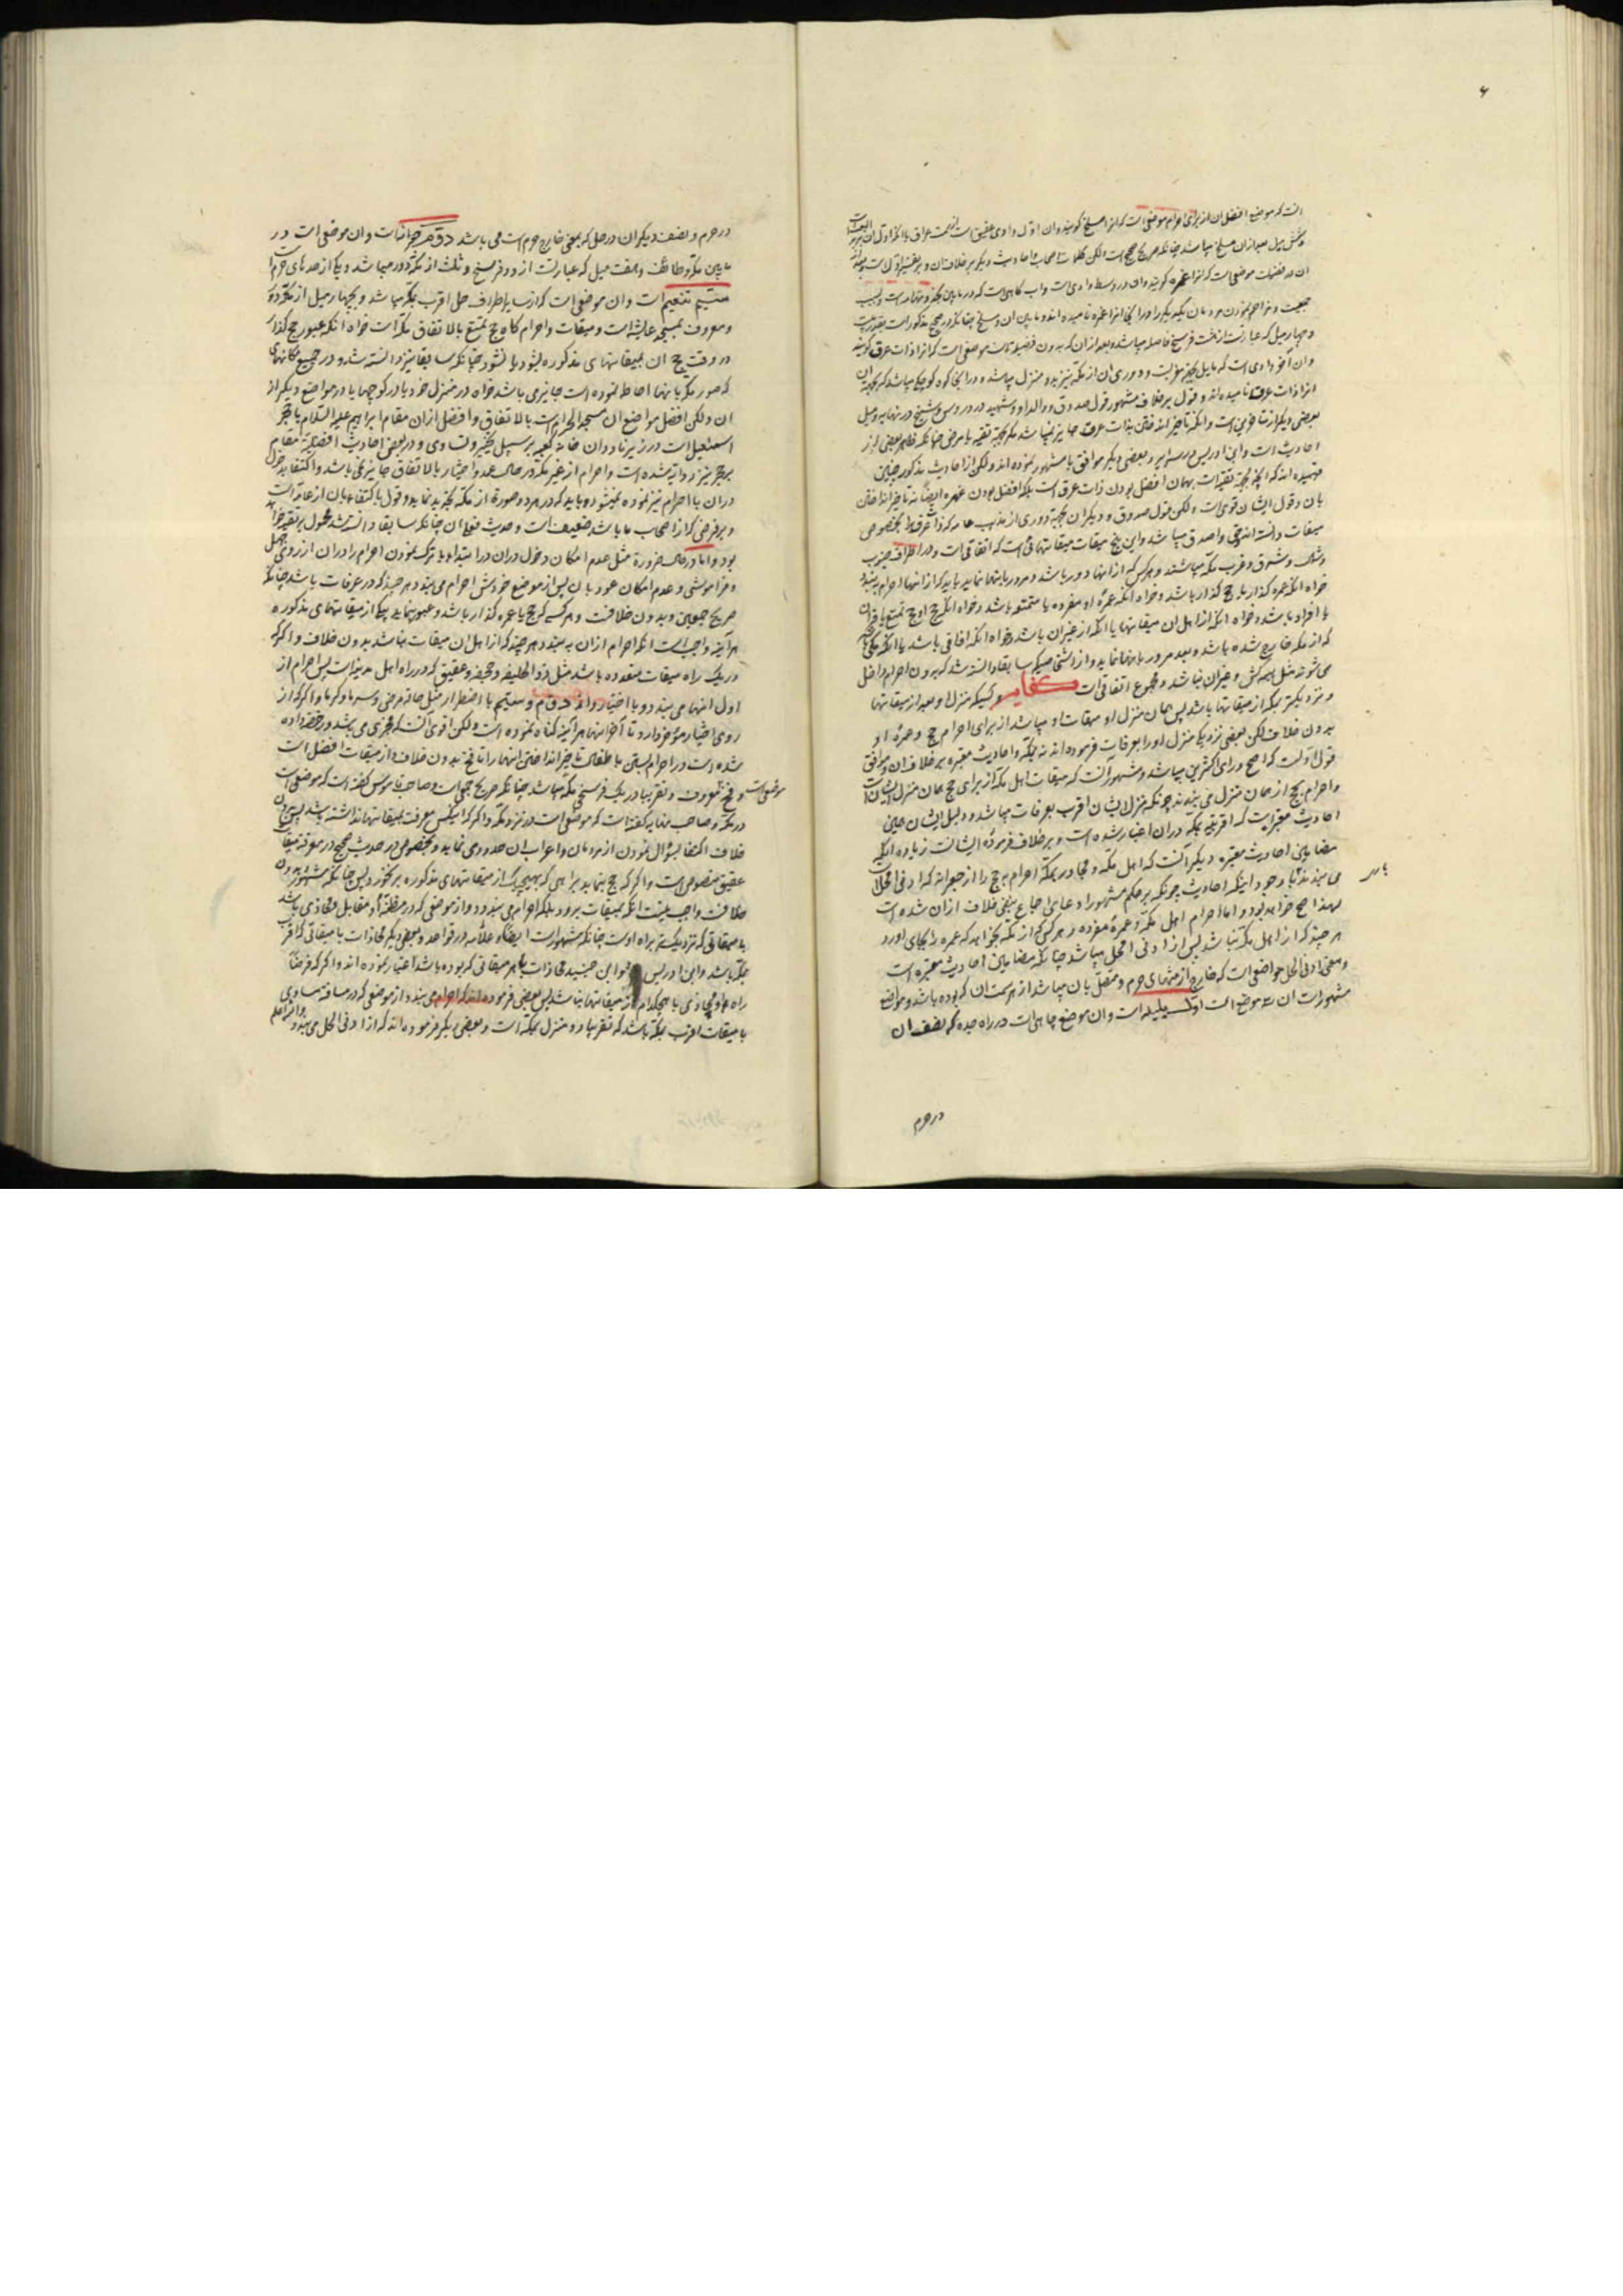 ۶
انست که موضع افضل ان از برای احرام موضعی است که انرا مسلخ گویند و ان اول وادی عقیق است از سمت عراق
و شش میل بعد از ان مسلخ میباشد چنانکه صریح صحیح است و لکن کلمات اصحاب و احادیث دیگر بر خلاف ان
ان در فضیلت موضعی است که انرا غمره گویند و ان در وسط وادی است
جمعیت و مزاحم نمودن مردمان یکدیگر را در انجا انرا غمره نامیده اند و مابین ان و مسلخ چنانکه در صحیح مذکور است
و چهار میل که عبارتست از هشت فرسخ فاصله میباشد و بعد از ان که بدون فضیلت است موضعی است که انرا ذات عرق گویند
و ان آخر وادی است که مایل بچیز مغربست و دوری ان از مکه نیز بدو منزل میباشد و در انجا کوه کوچکی میباشد که بجهة ان
انرا ذات عرق نامیده اند و قول بر خلاف مشهور قول صدوق و والد او و شهید در دروس و شیخ در نهایه و میل
بعضی دیگر از متاخرین است و انکه تاخیر انداختن بذات عرق جایز نمیباشد مگر بجهة تقیه یا مرض چنانکه ظاهر بعضی از
احادیث است و ابن ادریس در سرایر و بعضی دیگر موافق با مشهور نموده اند و لکن از احادیث مذکوره چنین
فهمیده اند که انچه بجهة تقیه است همان افضل بودن ذات عرق است بلکه افضل بودن غمره ایضاً نه تاخیر انداختن
بان و قول ایشان قوی است و لکن قول صدوق و دیگران بجهة دوری از مذهب عامه
میقات دانسته اند و اصدق میباشد و این پنج میقات میقاتهائی است که اتفاقی است و در اطراف جنوب
و شمال و شرق و غرب مکه میباشند و هر کس که از انها دور باشد و مرور بانها نماید باید که از انها احرام به بندد
خواه انکه عمره گذار یا حج گذار باشد و خواه انکه عمره او مفرده یا متمتعه باشد و خواه انکه حج او حج تمتع یا قران
یا افراد باشد و خواه انکه از اهل ان میقاتها یا انکه از غیر ان باشد و خواه انکه افاقی باشد یا انکه مکی باشد
که از مکه خارج شده باشد و بعد مرور بانها نماید و از اشخاصیکه سابقا دانسته شد که بدون احرام داخل
می شوند مثل هیمه کش و غیر ان نباشد و مجموع اتفاقی است و کسیکه منزل او بعد از میقاتها
و نزدیکتر بمکه از میقاتها باشد پس همان منزل او میقات او میباشد از برای احرام حج و عمره او
بدون خلاف لکن بعضی نزدیک منزل او را بعرفات فرموده اند نه بمکه و احادیث معتبره بر خلاف ان و موافق
قول اولست که اصح و رای اکثرین میباشد و مشهور انست که میقات اهل مکه از برای حج همان منزل ایشان است
و احرام حج از همان منزل می بندند چونکه منزل ایشان اقرب بعرفات میباشد و دلیل ایشان همین
احادیث معتبر است که اقربیت بمکه در ان اعتبار شده است و بر خلاف فرموده ایشانست زیاده انکه
مضامین احادیث معتبره دیگر انست که اهل مکه و مجاور بمکه احرام به حج را از جعرانه که ادنی الحل است
می بندند با وجود اینکه احادیث چونکه بر حکم مشهور ادعای اجماع بنفی خلاف از ان شده است
لهذا اصح خواهد بود و اما احرام اهل مکه و عمره مفرده و هر کس که از مکه بخواهد که عمره را بجای اورد
هر چند که از اهل مکه نباشد پس از ادنی الحل میباشد چنانکه مضامین احادیث معتبره است
و معنی ادنی الحل مواضعی است که خارج از منتهای حرم و متصل بان میباشد از هر سمت ان که بوده باشد و مواضع
مشهور است ان سه موضع است اول حدیبیه است و ان موضع چاهی است در راه جده که نصف ان
در حرم
در حرم و نصف دیگر ان در حل که بمعنی خارج حرم است می باشد دوم جعرانه است و ان موضعی است در
مابین مکه و طائف و بهفت میل که عبارتست از دو فرسخ و ثلث از مکه دور میباشد و یکی از حدهای حرم است
سیم تنعیم است و ان موضعی است که از سایر اطراف حل اقرب بمکه میباشد و بچهار میل از مکه دور
و معروف بمسجد عایشه است و میقات و احرام گاه حج تمتع بالاتفاق مکه است خواه انکه عبور حج گذار
در وقت حج ان بمیقاتهای مذکوره بشود یا نشود چنانکه سابقا نیز دانسته شد و در جمیع مکانهای
که صور مکه بانها احاطه نموده است جایز می باشد خواه در منزل خود یا در کوچها یا در مواضع دیگر از
ان و لکن افضل مواضع ان مسجد الحرام است بالاتفاق و افضل از ان مقام ابراهیم علیه السلام یا حجر
اسمعیل است در زیر ناودان خانه کعبه بر سبیل تخییر و تساوی و در بعضی احادیث افضلیة مقام
بر حجر نیز روایة شده است و احرام از غیر مکه در حال عمد و اختیار بالاتفاق جایز نمی باشد و اکتفا به دخول
در ان با احرام نیز نموده نمیشود و باید که در هر دو صورة از مکه تجدید نماید و قول باکتفاء بان از عامه است
و بر فرضی که از اصحاب ما باشد ضعیف است و حدیث فعل ان چنانکه سابقا دانسته شد محمول بر تقیه خواهد
بود و اما در حال ضرورة مثل عدم امکان دخول در ان در ابتداء یا ترک نمودن احرام را در ان از روی جهل
و فراموشی و عدم امکان عود بان پس از موضع خودش احرام می بندد هر چند که در عرفات باشد چنانکه
صریح صحیحین و بدون خلافست و هر کسی که حج یا عمره گذار باشد و عبور نماید بیکی از میقاتهای مذکوره
هر آینه واجبست انکه احرام از ان به بندد هر چند که از اهل ان میقات نباشد بدون خلاف و اگر که
در یک راه میقات متعدده باشد مثل ذو الحلیفه و جحفه و عقیق که در راه اهل مدینه است پس احرام از
اول انها می بندد و با اختیار
روی اختیار موخر دارد تا آخر انها هر آینه گناه نموده است و لکن اقوی انست که مجزی می باشد و رخصت داده
شده است در احرام بستن با طفلان تاخیر انداختن انها را تا فخ بدون خلاف و از میقات افضل است
موضعی است و فخ معروف و تقریبا در یک فرسخی مکه میباشد چنانکه صریح جمعی است و صاحب قاموس گفته است که موضعی است
در مکه و صاحب نهایه گفته است که موضعی است در نزد مکه و اگر که انکس معرفت بمیقاتها نداشته باشد پس بدون
خلاف اکتفا بسؤال نمودن از مردمان و اعراب ان حدود می نماید و بخصوص در حدیث صحیح در معرفت میقات
عقیق منصوص است و اگر که حج بنماید براهی که بهیچیک از میقاتهای مذکوره بر نخورد پس چنانکه مشهور و بدون
خلافست واجب نیست انکه بمیقات برود بلکه احرام می بندد و از موضعی که در مظنه او مقابل و محاذی باشد
به میقاتی که نزدیکتر براه اوست چنانکه مشهور است ایضاً و علامه در قواعد و بعضی دیگر محاذات با میقاتی که اقرب
بمکه باشد و ابن ادریس و ابن جنید محاذات با هر میقاتی که بوده باشد اعتبار نموده اند و اگر که فرضاً
راه او محاذی با هیچکدام از میقاتها نباشد پس بعضی فرموده اند که احرام می بندد از موضعی که در مسافت مساوی
با میقات اقرب بمکه باشد که تقریبا دو منزل بمکه است و بعضی دیگر فرموده اند که از ادنی الحل می بندد و الله اعلم